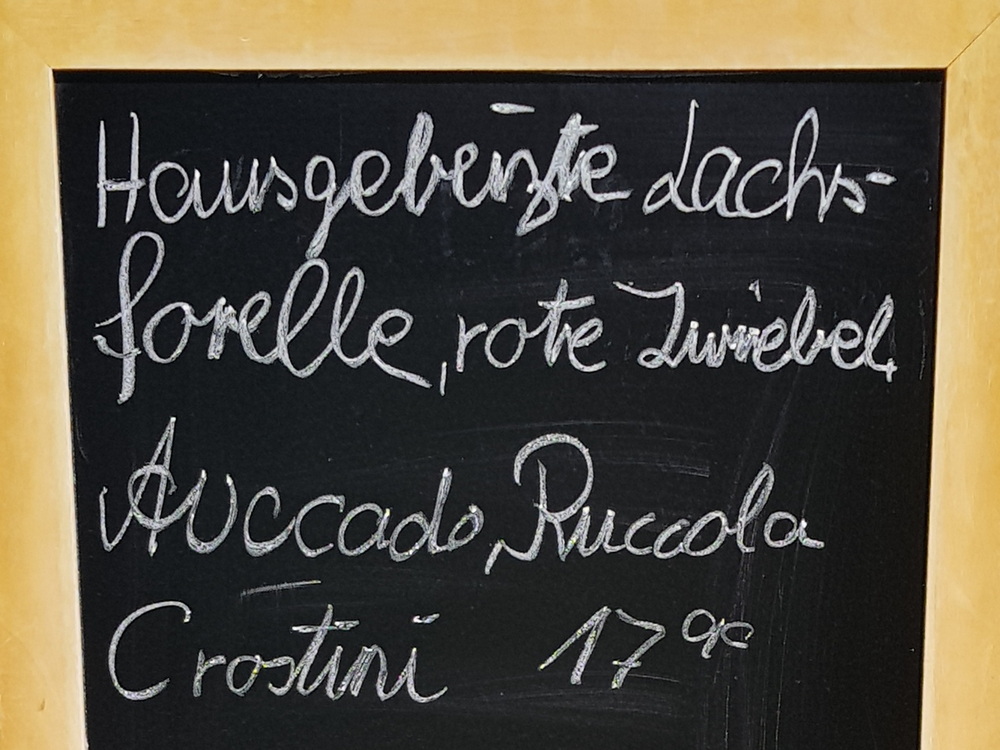 Hausgebeizte Lachs-
forelle, rote Zwiebel,
Avoccado, Ruccola
Crostini 17 90